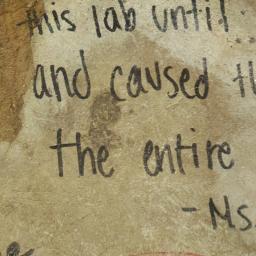 this lab until
and caused th
the entire
- Ms.